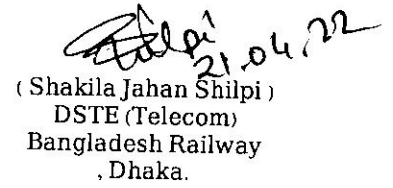 Shilpi
21.04.22
( Shakila Jahan Shilpi )
DSTE (Telecom)
Bangladesh Railway
, Dhaka.